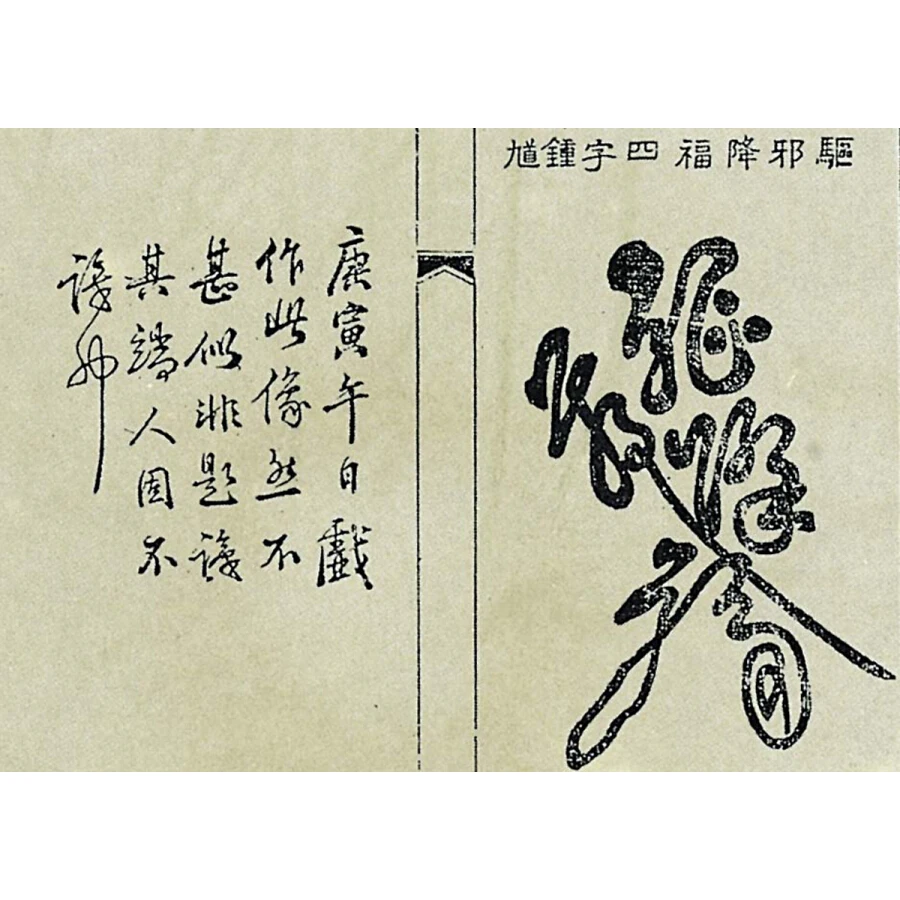 驅邪降福四字鍾馗
庚寅午日戲
作此像然不
甚似非題識
其端人固不
識耳